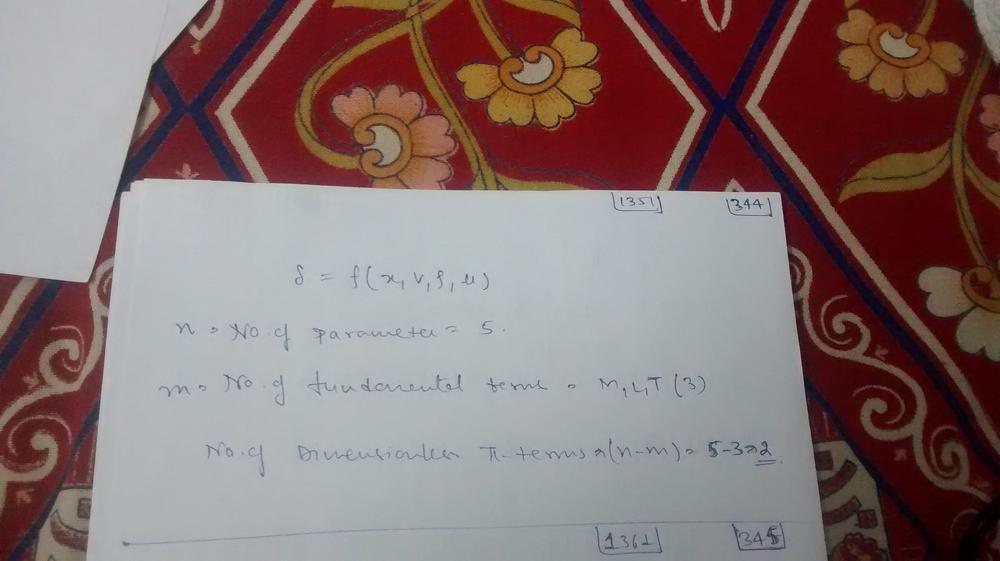 1351 344
δ = f(x, v, ρ, μ)
n = No. of parameter = 5.
m = No. of fundamental terms = M, L, T (3)
No. of Dimensionless π-terms = (n-m) = 5-3=2.
1361 345